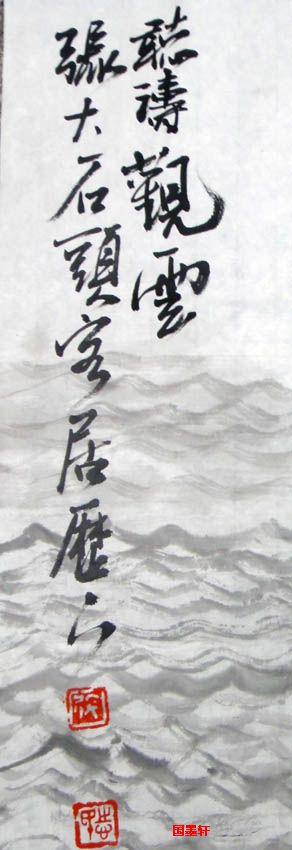 聼濤觀雲
張大石頭客居歷下
国墨轩